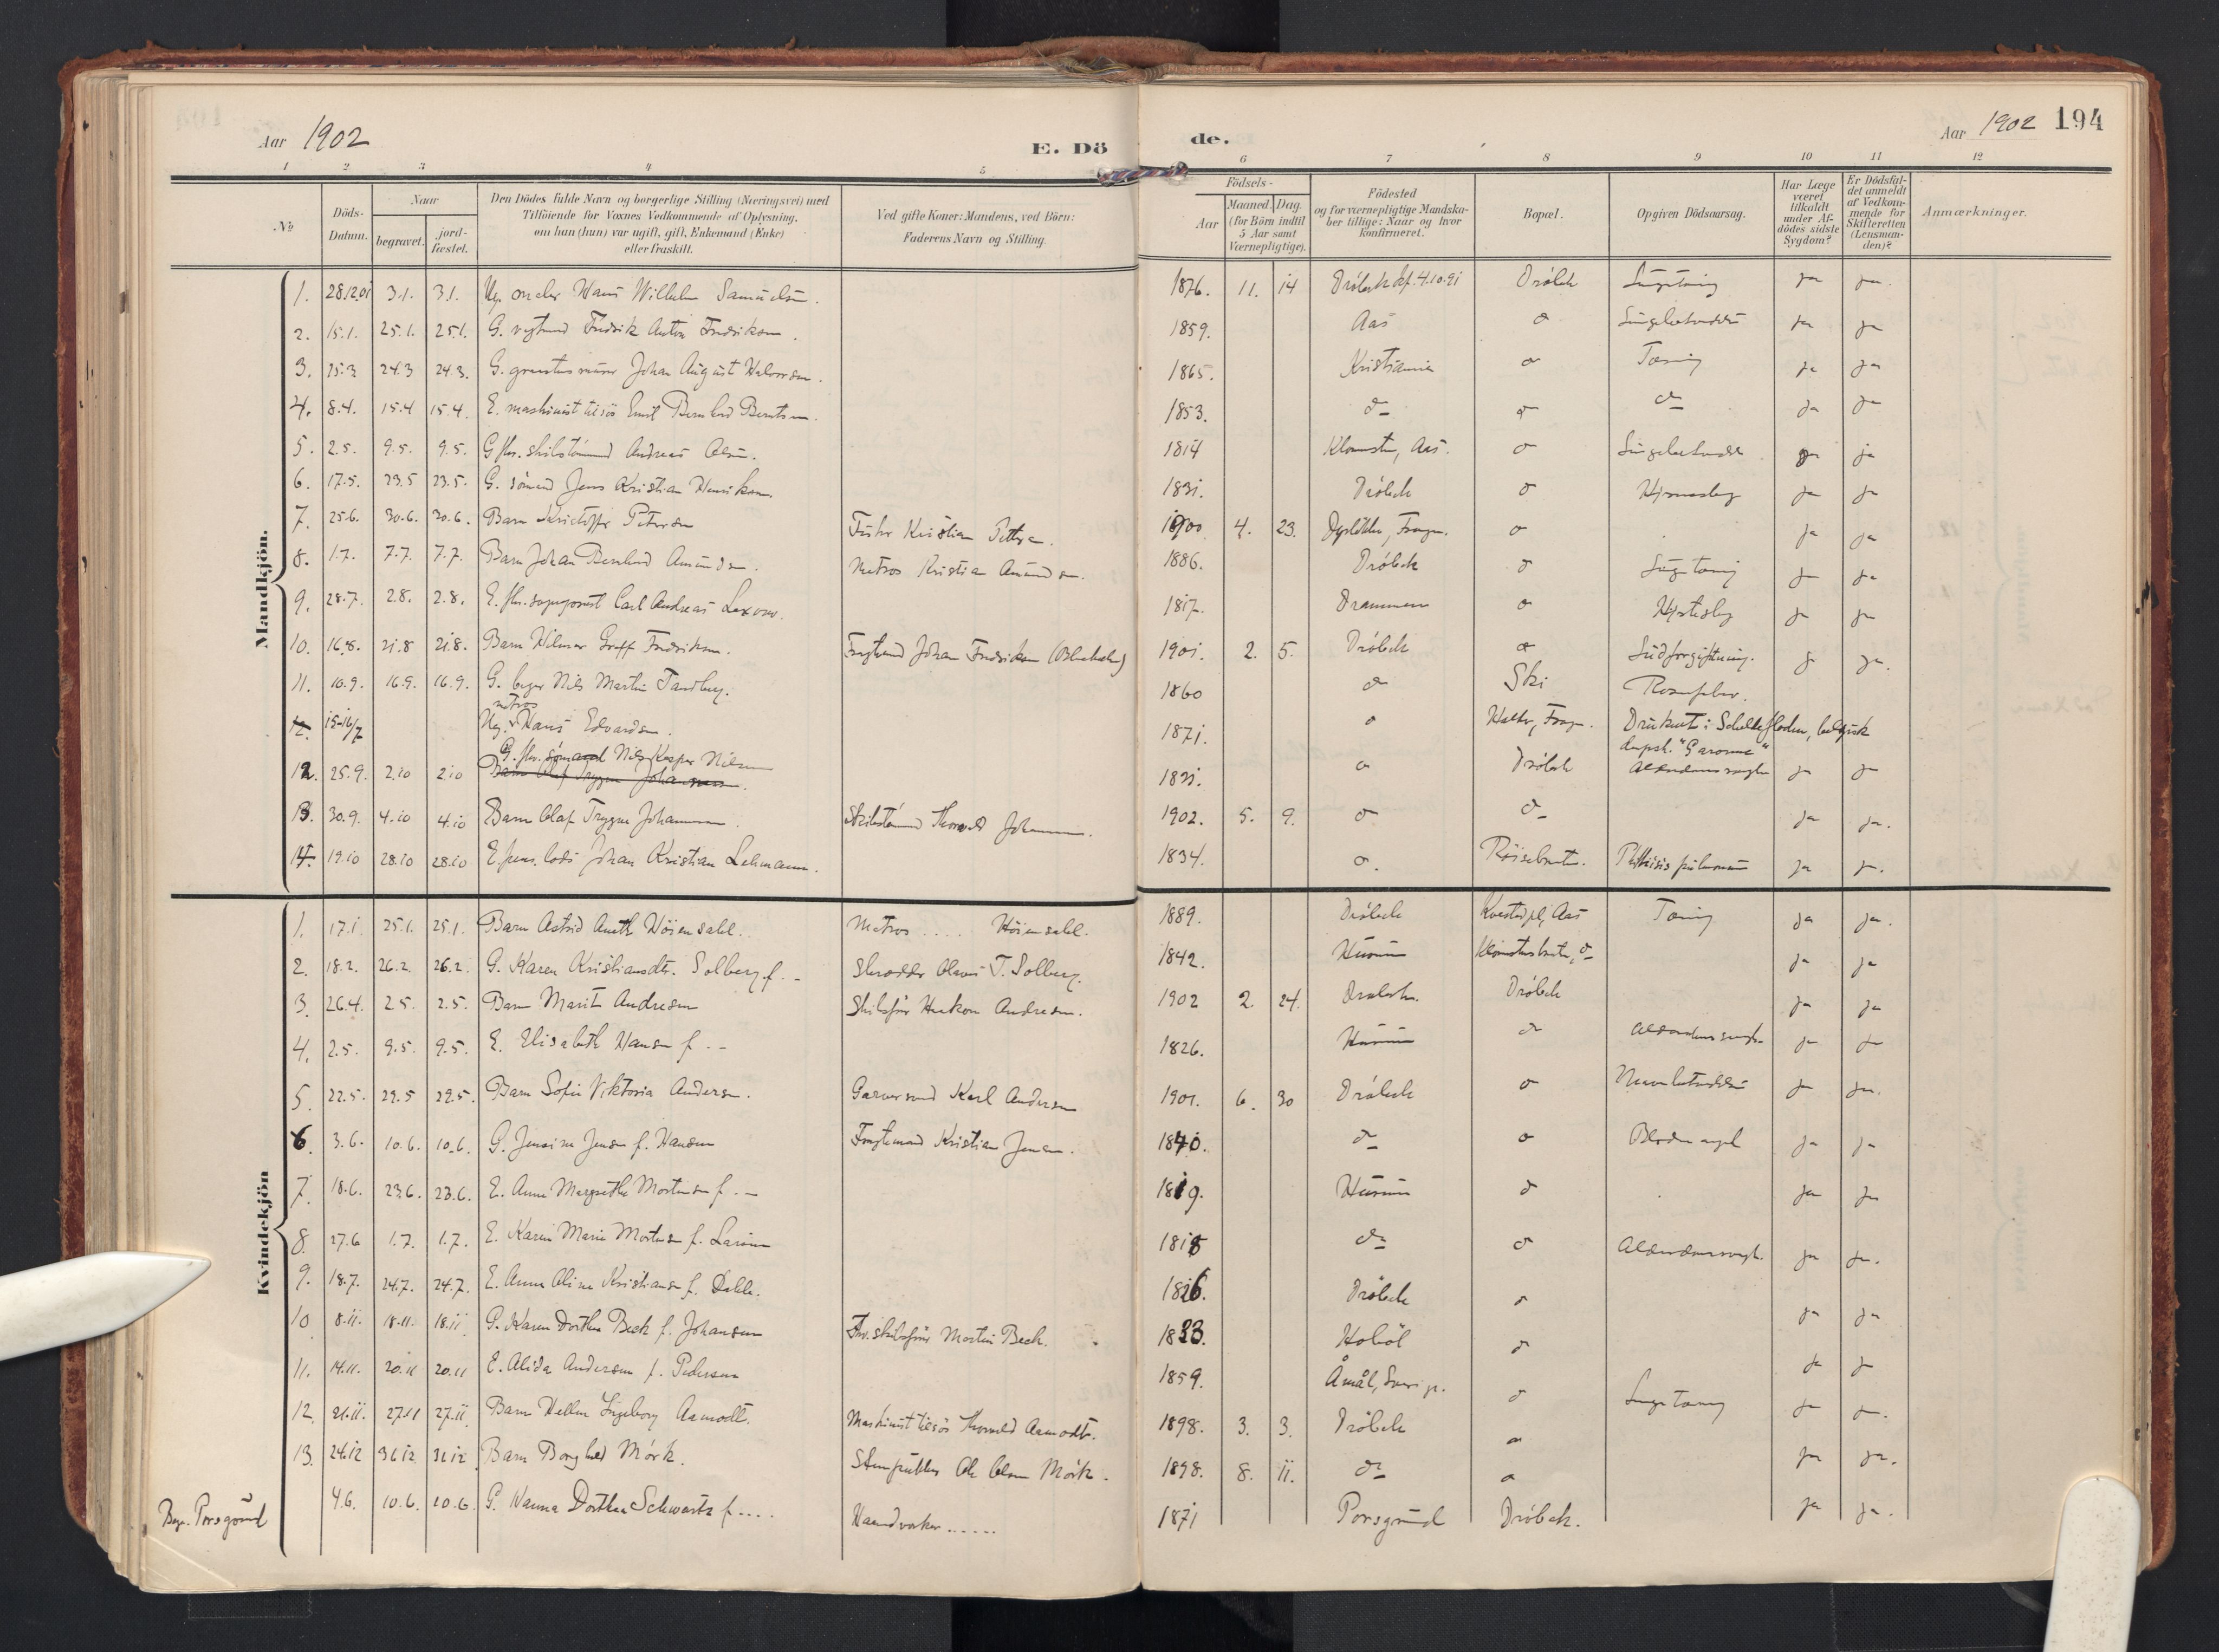 Aar 1902
E. Dö
de.
Aar 1902 194
1 2 3 4 5 6 7 8 9 10 11 12
№
Döds-Datum.
Naar
begravet.
jord-fæstet.
Den Dödes fulde Navn og borgerlige Stilling (Næringsvei) med
Tilföiende for Voxnes Vedkommende af Oplysning,
om han (hun) var ugift, gift, Enkemand (Enke)
eller fraskilt.
Ved gifte Koner: Mandens, ved Börn:
Faderens Navn og Stilling.
Födsels-
Aar
Maaned. Dag.
(for Börn indtil
5 Aar samt
Værnepligtige).
Födested
og for værnepligtige Mandska-
ber tillige: Naar og hvor
konfirmeret.
Bopæl.
Opgiven Dödsaarsag.
Har Læge
været
tilkaldt
under Af-
dödes sidste
Sygdom?
Er Dödsfal-
det anmeldt
af Vedkom-
mende for
Skifteretten
(Lensman-
den)?
Anmærkninger.
Mandkjön.
1. 28.12.01 3.1. 3.1. Ug. Hans Wilhelm Samuelsen. 1876. 11. 14 Dröbak kf. 4.10.91 Dröbak Lungetæring ja ja.
2. 15.1. 25.1. 25.1. G. Fredrik Anton Fredriksen. 1859. Aas do Lungebetændelse ja ja
3. 15.3 24.3 24.3. G. Johan August Halvorsen. 1865. Kristiania do Tæring ja ja
4. 8.4. 15.4 15.4. E. maskinist tilsös Emil Bernhard Berntsen. 1853. do do do ja ja
5. 2.5. 9.5. 9.5. G. fhv. skibstömmermand Andreas Olsen. 1814 Klommesten, Aas. do Lungebetændelse ja ja
6. 17.5. 23.5 23.5. G. sömand Jens Kristian Henriksen. 1831. Dröbak do Hjerneslag ja ja
7. 25.6. 30.6. 30.6. Barn Kristoffer Petersen Fisker Kristian Pettersen. 1900 4. 23. Dyrlökke, Frogn. do ja ja
8. 1.7. 7.7. 7.7. Barn Johan Bernhard Amundsen. Matros Kristian Amundsen. 1886. Dröbak do Lungetæring ja ja
9. 28.7. 2.8. 2.8. E. fhv. Carl Andreas Lexow. 1817. Drammen do Hjerteslag ja ja
10. 16.8. 21.8 21.8. Barn Hilmar Graff Fredriksen. Fragtemand Johan Fredriksen 1901. 2. 5. Dröbak do Ludforgiftning. ja ja.
11. 10.9. 16.9. 16.9. G. bager Nils Martin Tandberg. 1860 do Ski Rosenfeber.
12. 15-16/7 Ug. matros Hans Edvardsen. 1871. do Halter, Frogn. Druknet i Scheldefloden, belgisk
dampsk. "Garonne"
12. 25.9. 2.10 2.10 G. fhv. sömand Nils Kasper Nilsen
Barn Olaf Trygve Johannesen. 1831. do Dröbak Alderdomssvaghed ja ja
13. 30.9. 4.10 4.10 Barn Olaf Trygve Johannesen. Skibstömmermand Thorvald Johannesen. 1902. 5. 9. do do ja ja.
14. 19.10 28.10 28.10 E. pens. lods Johan Kristian Lehmann. 1834. do. Phthisis pulmonum ja ja.
Kvindekjön
1. 17.1. 25.1. 25.1. Barn Astrid Aneth Höiensahl. Matros .... Höiensahl. 1889. Dröbak Kvestadpl, Aas Tæring ja ja.
2. 18.2. 26.2. 26.2. G. Karen Kristiansdtr. Solberg f. - Skrædder Olaus T. Solberg. 1842. Hurum do ja ja
3. 26.4. 2.5. 2.5. Barn Marit Andresen Skibsförer Haakon Andresen. 1902 2. 24. Dröbak. Dröbak ja ja
4. 2.5. 9.5. 9.5. E. Elisabeth Hansen f. -- 1826. Hurum do Alderdomssvagh. ja ja
5. 22.5. 29.5 29.5. Barn Sofie Viktoria Andersen. Garversvend Karl Andersen 1901. 6. 30 Dröbak do ja ja.
6. 3.6. 10.6. 10.6. G. Jensine Jensen f. Hansen Fragtemand Kristian Jensen. 1840. do do Blodmangel ja ja
7. 18.6. 23.6. 23.6. E. Anne Margrethe Mortensen f. -- 1819. Hurum do ja ja
8. 27.6 1.7. 1.7. E. Karen Marie Mortensen f. Larsen 1818 do do Alderdomssvagh. ja ja.
9. 18.7. 24.7. 24.7. E. Anne Oline Kristiansen f. Dahl. 1826. Dröbak do ja ja
10 8.11. 18.11. 18.11. G. Karen Dorthea Beck f. Johansen Fhv. skibsförer Martin Beck. 1833. Hoböl do ja ja
11. 14.11. 20.11 20.11 E. Alida Andersen f. Pedersen 1859. Åmål, Sverige. do ja ja.
12. 21.11. 27.11 27.11. Barn Ingeborg Aamodt. Maskinist tilsös Thorvald Aamodt. 1898. 3. 3. Dröbak do Lungetæring ja ja.
13. 24.12 31.12 31.12 Barn Borghild Mörk. Ole Olsen Mörk. 1898. 8. 11. do do
Begr. Porsgrund 4.6. 10.6. 10.6. G. Hanna Dorthea Schwartz f.... Haandverker..... 1871 Porsgrund Dröbak. ja ja.